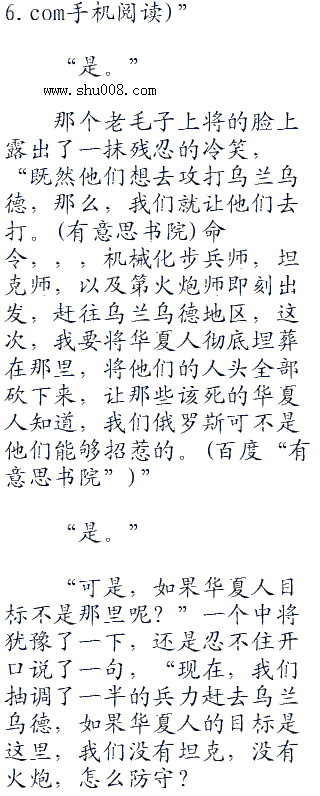 6.com手机阅读)”
“是。”
www.shu008.com
那个老毛子上将的脸上
露出了一抹残忍的冷笑，
“既然他们想去攻打乌兰乌
德，那么，我们就让他们去
打。(有意思书院)命
令，，，机械化步兵师，坦
克师，以及第火炮师即刻出
发，赶往乌兰乌德地区，这
次，我要将华夏人彻底埋葬
在那里，将他们的人头全部
砍下来，让那些该死的华夏
人知道，我们俄罗斯可不是
他们能够招惹的。(百度“有
意思书院”)”
“是。”
“可是，如果华夏人目
标不是那里呢？”一个中将
犹豫了一下，还是忍不住开
口说了一句，“现在，我们
抽调了一半的兵力赶去乌兰
乌德，如果华夏人的目标是
这里，我们没有坦克，没有
火炮，怎么防守？